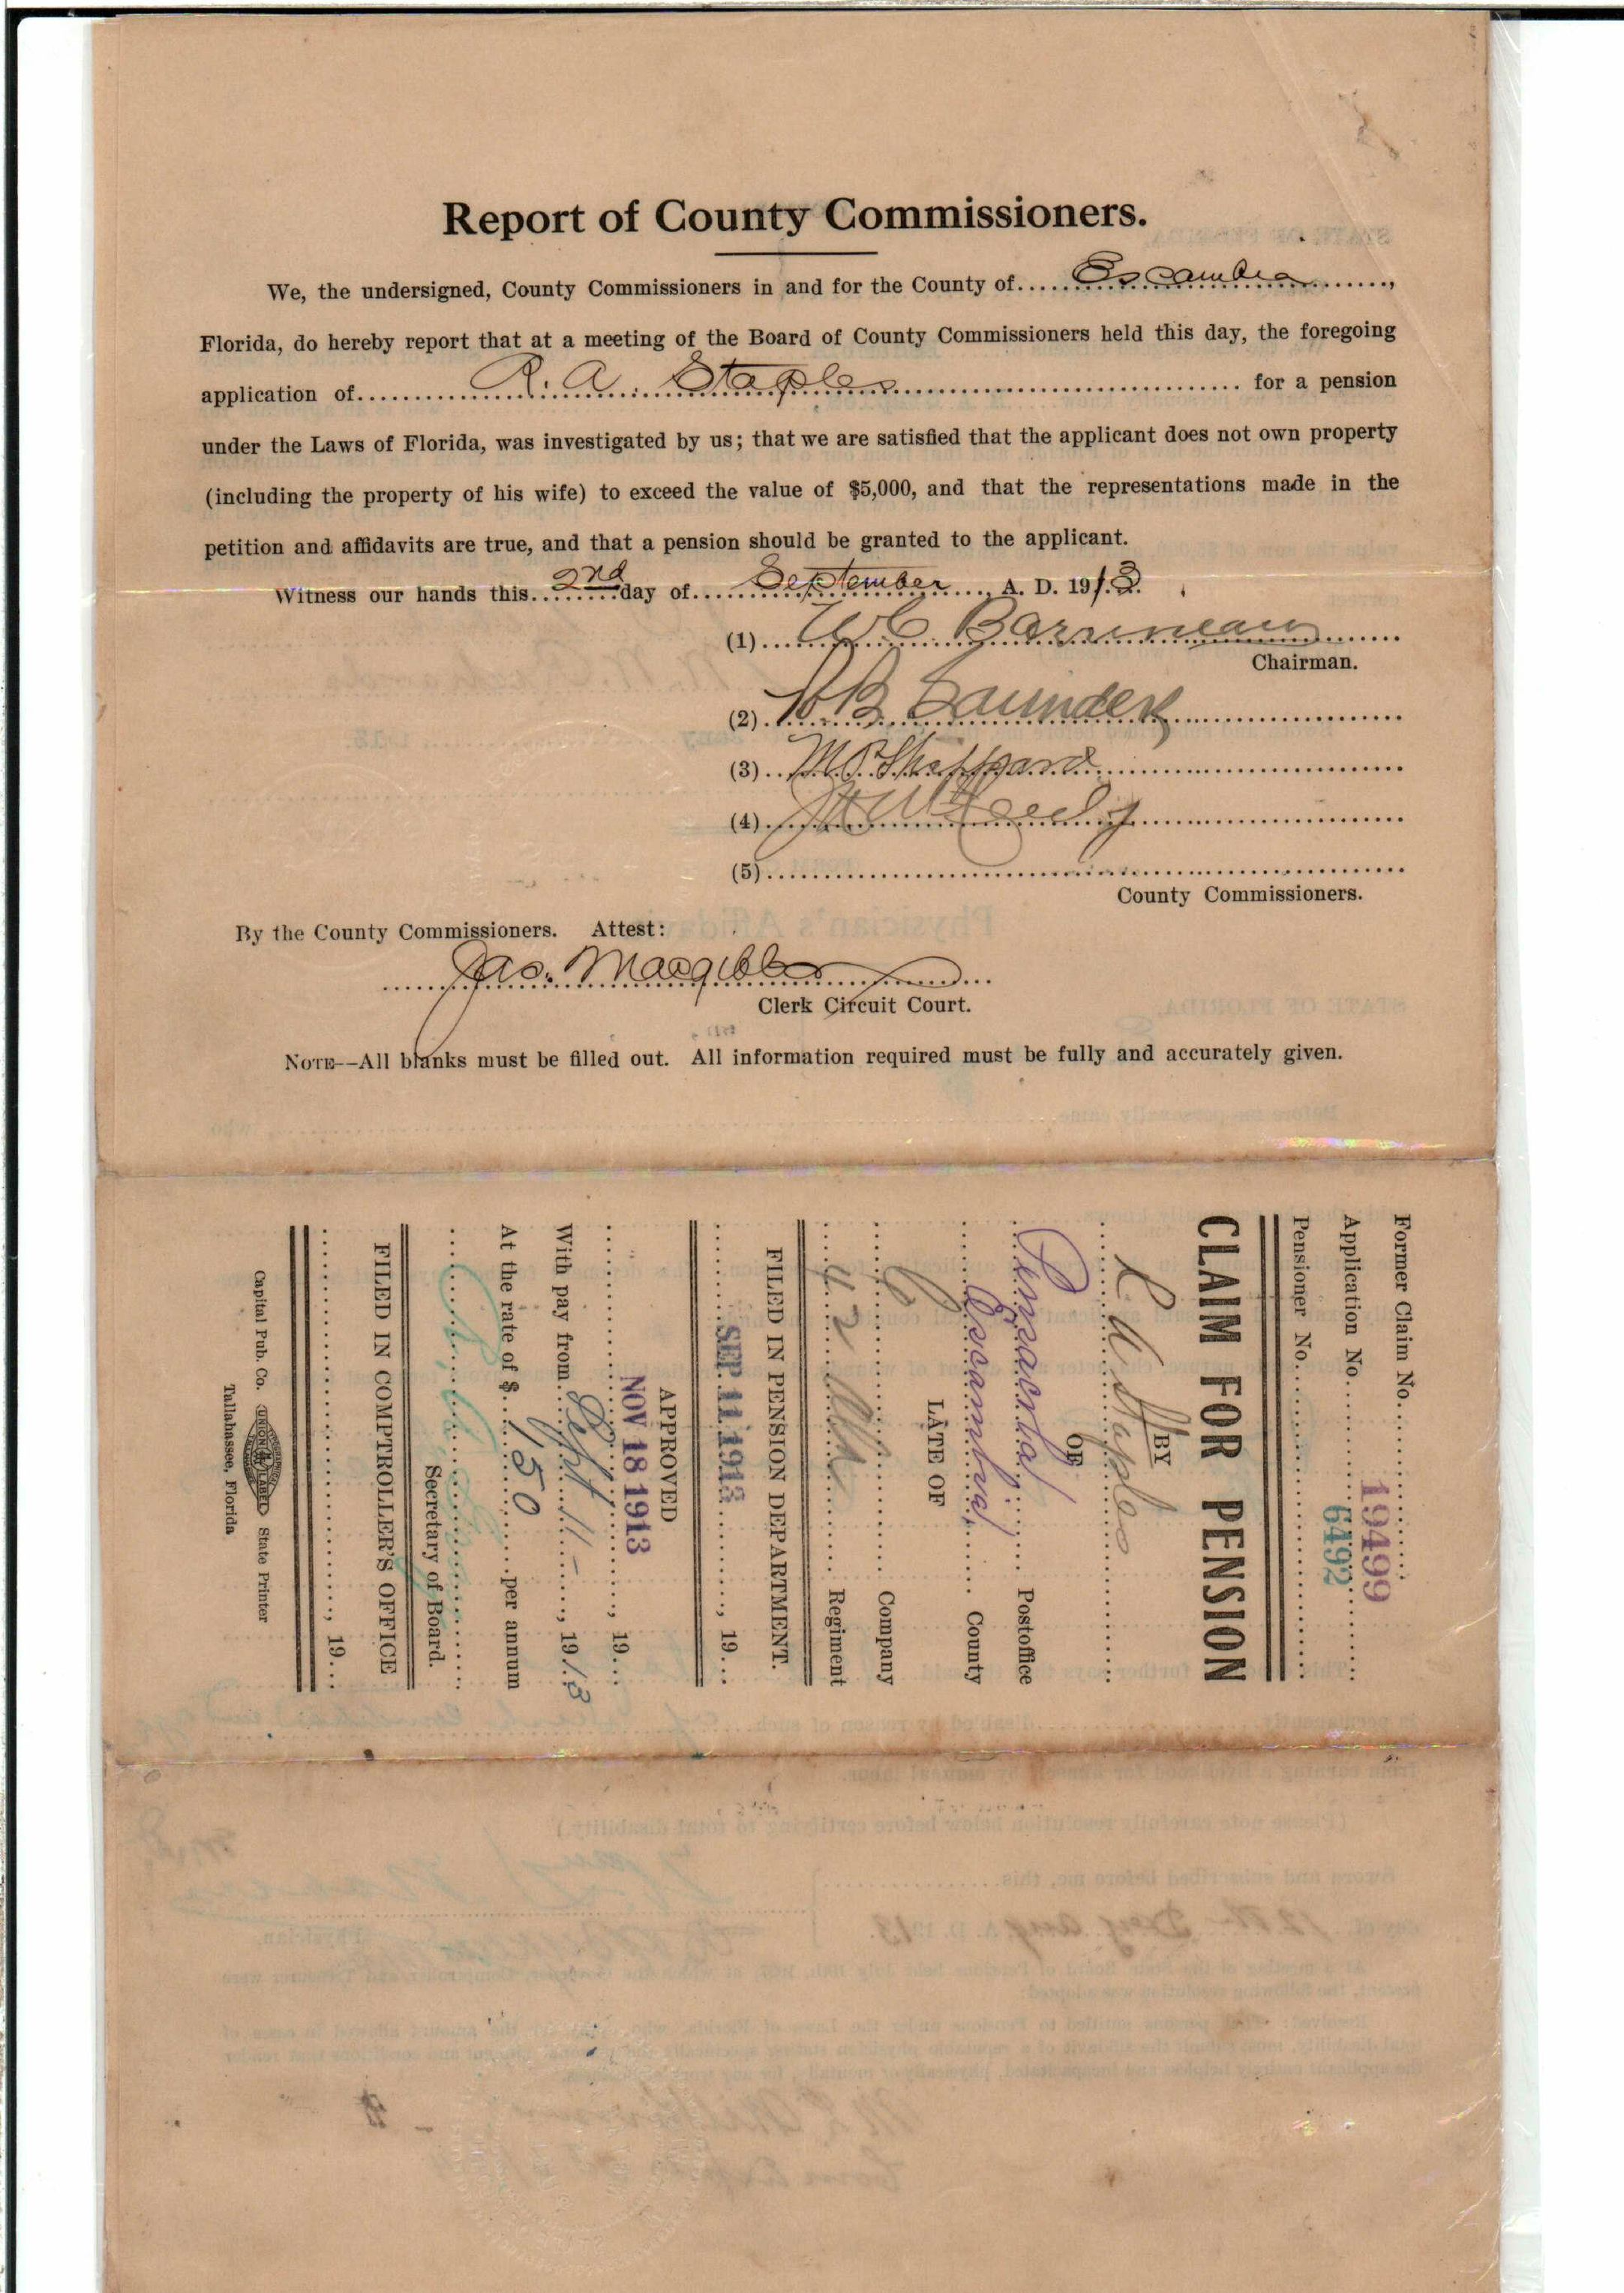 Report of County Commissioners.
We, the undersigned, County Commissioners in and for the County of Escambia,
Florida, do hereby report that at a meeting of the Board of County Commissioners held this day, the foregoing
application of R. A. Staples for a pension
under the Laws of Florida, was investigated by us; that we are satisfied that the applicant does not own property
(including the property of his wife) to exceed the value of $5,000, and that the representations made in the
petition and affidavits are true, and that a pension should be granted to the applicant.
Witness our hands this 2nd day of September, A. D. 1913.
(1) W C Barrineau
Chairman.
(2) B Saunders
(3) M P Sheppard
(4)
(5)
County Commissioners.
By the County Commissioners. Attest:
Jas. Macgibbon
Clerk Circuit Court.
NOTE--All blanks must be filled out. All information required must be fully and accurately given.
Former Claim No.
19499
Application No. 6492
Pensioner No.
CLAIM FOR PENSION
BY
R A Staples
OF
Pensacola Postoffice
Escambia, County
LATE OF
C Company
42 Ala Regiment
FILED IN PENSION DEPARTMENT.
SEP 11 1913, 19
APPROVED
NOV 18 1913, 19
With pay from Sept 11-, 1913
At the rate of $ 150 per annum
Secretary of Board.
FILED IN COMPTROLLER'S OFFICE
, 19
Capital Pub. Co. UNION LABEL State Printer
Tallahassee, Florida